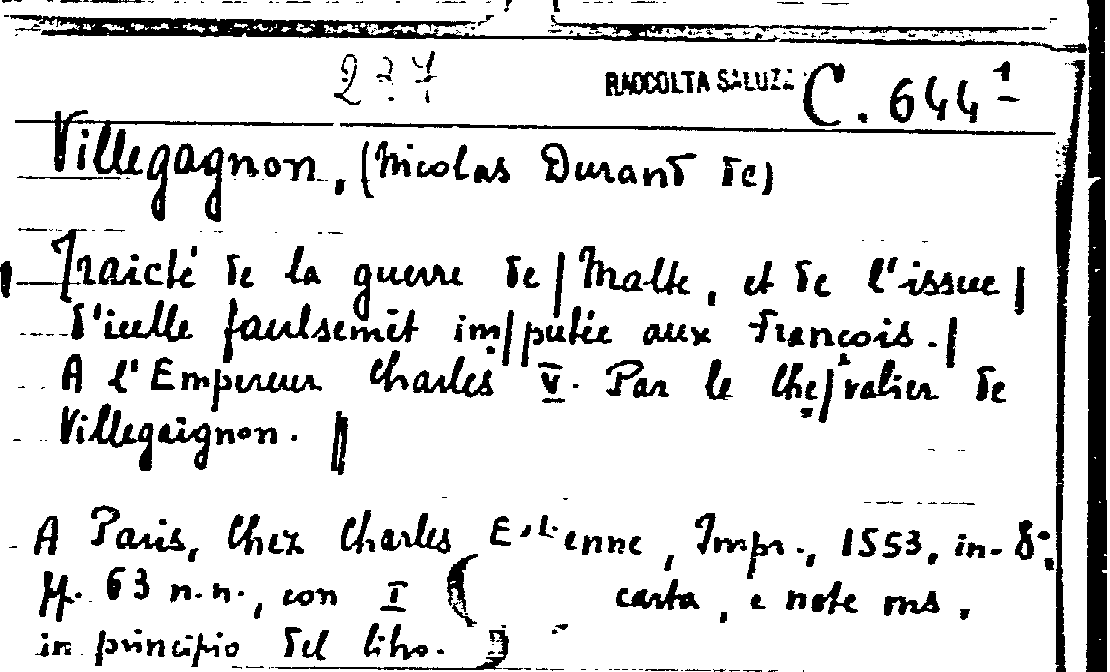 237 RACCOLTA SALUZ C. 644¹
Villegagnon, (Nicolas Durand de)
Traicté de la guerre de | Malte, et de l'issue |
d'icelle faulsemēt im|putée aux François. |
A l'Empereur Charles V. Par le Che|valier de
Villegaignon. ||
A Paris, Chez Charles Estienne, Impr., 1553, in-8°,
ff. 63 n.n., con I ( carta, e note ms.
in principio del libro. )